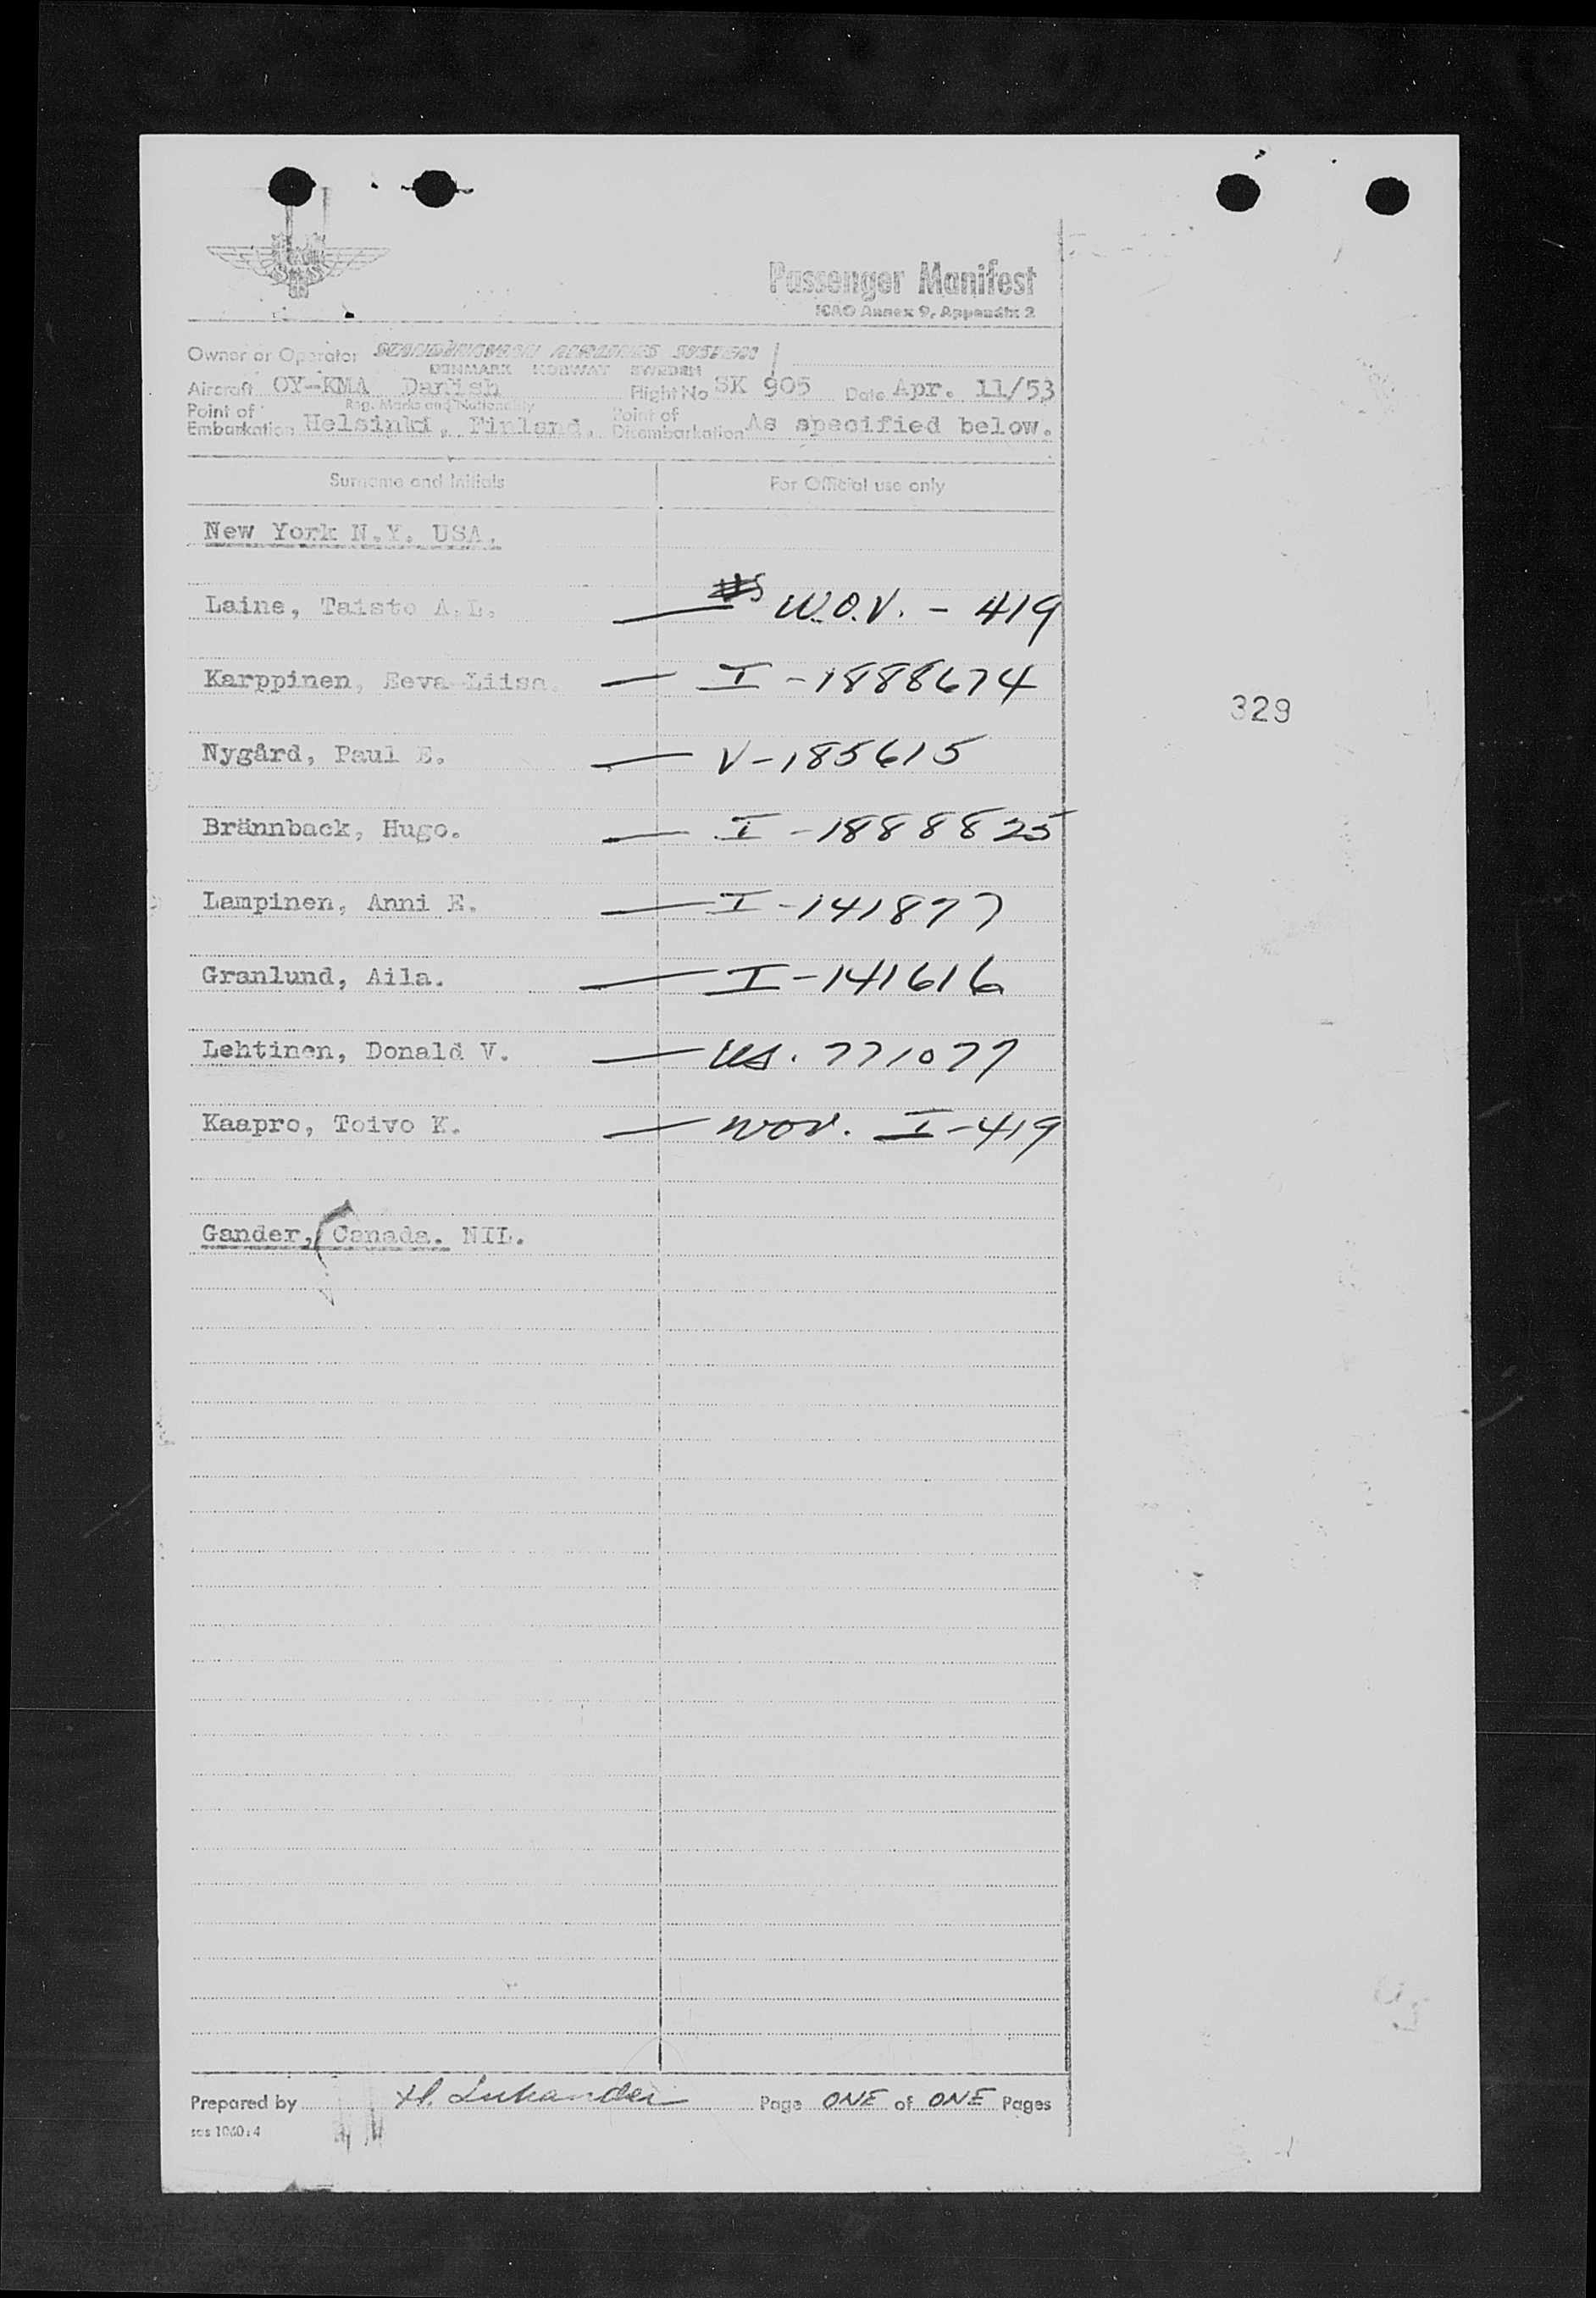 SAS
Passenger Manifest
ICAO Annex 9, Appendix 2
Owner or Operator SCANDINAVIAN AIRLINES SYSTEM
DENMARK NORWAY SWEDEN
Aircraft OY-KMA Danish Flight No SK 905 Date Apr. 11/53
Reg. Marks and Nationality
Point of Embarkation Helsinki, Finland. Point of Disembarkation As specified below.
Surname and Initials For Official use only
New York N.Y. USA.
Laine, Taisto A.L. — W.O.V. - 419
Karppinen, Eeva-Liisa. — I - 1888674
329
Nygård, Paul E. — V-185615
Brännback, Hugo. — I - 1888825
Lampinen, Anni E. — I - 141877
Granlund, Aila. — I - 141616
Lehtinen, Donald V. — US. 771077
Kaapro, Toivo K. — WOV. I-419
Gander, Canada. NIL.
Prepared by H. Page ONE of ONE Pages
sas 1060:4